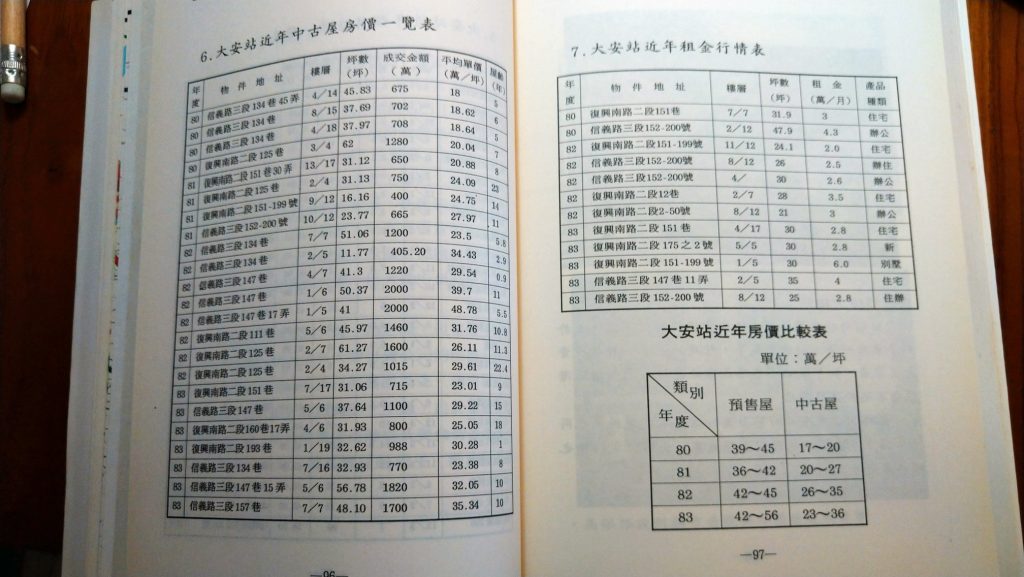 6.大安站近年中古屋房價一覽表
年度 物件地址 樓層 坪數(坪) 成交金額(萬) 平均單價(萬/坪) 屋齡(年)
80 信義路三段134巷45弄 4/14 45.83 675 18 5
80 信義路三段134巷 8/15 37.69 702 18.62 6
80 信義路三段134巷 4/18 37.97 708 18.64 5
80 復興南路二段125巷 3/4 62 1280 20.04 7
81 復興南路二段151巷30弄 13/17 31.12 650 20.88 8
81 復興南路二段125巷 2/4 31.13 750 24.09 23
81 復興南路二段151-199號 9/12 16.16 400 24.75 14
81 信義路三段152-200號 10/12 23.77 665 27.97 11
82 信義路三段134巷 7/7 51.06 1200 23.5 5.8
82 信義路三段134巷 2/5 11.77 405.20 34.43 2.9
82 信義路三段147巷 4/7 41.3 1220 29.54 0.9
82 信義路三段147巷 1/6 50.37 2000 39.7 11
82 信義路三段147巷17弄 1/5 41 2000 48.78 5.5
82 復興南路二段111巷 5/6 45.97 1460 31.76 10.8
82 復興南路二段125巷 2/7 61.27 1600 26.11 11.3
82 復興南路二段125巷 2/4 34.27 1015 29.61 22.4
83 復興南路二段151巷 7/17 31.06 715 23.01 9
83 信義路三段147巷 5/6 37.64 1100 29.22 15
83 復興南路二段160巷17弄 4/6 31.93 800 25.05 18
83 復興南路二段193巷 1/19 32.62 988 30.28 1
83 信義路三段134巷 7/16 32.93 770 23.38 8
83 信義路三段147巷15弄 5/6 56.78 1820 32.05 10
83 信義路三段157巷 7/7 48.10 1700 35.34 10
—96—
7.大安站近年租金行情表
年度 物件地址 樓層 坪數(坪) 租金(萬/月) 產品種類
80 復興南路二段151巷 7/7 31.9 3 住宅
80 信義路三段152-200號 2/12 47.9 4.3 辦公
82 復興南路二段151-199號 11/12 24.1 2.0 住宅
82 信義路三段152-200號 8/12 26 2.5 辦住
82 信義路三段152-200號 4/ 30 2.6 辦公
82 復興南路二段12巷 2/7 28 3.5 住宅
82 復興南路二段2-50號 8/12 21 3 辦公
83 復興南路二段151巷 4/17 30 2.8 住宅
83 復興南路二段175之2號 5/5 30 2.8 新
83 復興南路二段151-199號 1/5 30 6.0 別墅
83 信義路三段147巷11弄 2/5 35 4 住宅
83 信義路三段152-200號 8/12 25 2.8 住辦
大安站近年房價比較表
單位:萬/坪
類別 年度 預售屋 中古屋
80 39～45 17～20
81 36～42 20～27
82 42～45 26～35
83 42～56 23～36
—97—